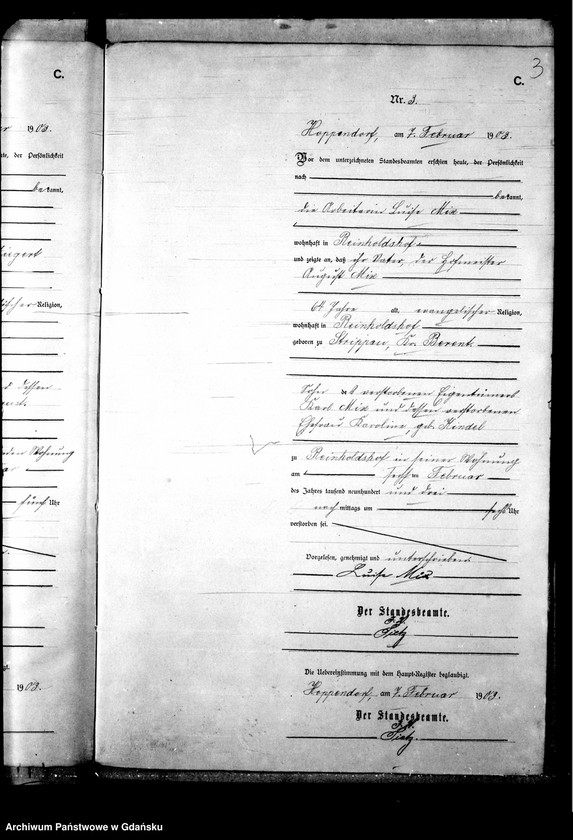 C.
er 1903.
ute, der Persönlichkeit
be kannt,
Religion,
Wohnung
fünf Uhr
1903.
C.
3
Nr. 3.
Hoppendorf, am 7. Februar 1903.
Vor dem unterzeichneten Standesbeamten erschien heute, der Persönlichkeit
nach
be kannt,
die Arbeiterin Luise Mix
wohnhaft in Reinholdshof
und zeigte an, daß ihr Vater, der Hofmeister
August Mix
64 Jahre alt, evangelischer Religion,
wohnhaft in Reinholdshof
geboren zu Strippau, Kr. Berent
Sohn des verstorbenen Eigentümers
Karl Mix und dessen verstorbenen
Ehefrau Karoline, geb. Hindel
zu Reinholdshof in seiner Wohnung
am sechsten Februar
des Jahres tausend neunhundert und drei
nach mittags um sechs Uhr
verstorben sei.
Vorgelesen, genehmigt und unterschrieben
Luise Mix
Der Standesbeamte.
Tietz
Die Uebereinstimmung mit dem Haupt-Register beglaubigt.
Hoppendorf, am 7. Februar 1903.
Der Standesbeamte.
Tietz.
Archiwum Państwowe w Gdańsku